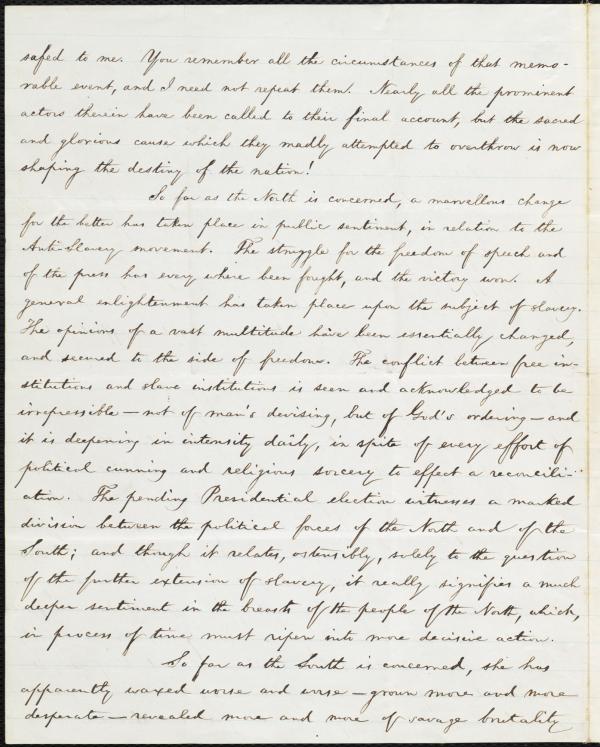 safed to me. You remember all the circumstances of that memo-
rable event, and I need not repeat them. Nearly all the prominent
actors therein have been called to their final account, but the sacred
and glorious cause which they madly attempted to overthrow is now
shaping the destiny of the nation!
So far as the North is concerned, a marvellous change
for the better has taken place in public sentiment, in relation to the
Anti-Slavery movement. The struggle for the freedom of speech and
of the press has every where been fought, and the victory won. A
general enlightenment has taken place upon the subject of slavery.
The opinions of a vast multitude have been essentially changed,
and secured to the side of freedom. The conflict between free in-
stitutions and slave institutions is seen and acknowledged to be
irrepressible — not of man's devising, but of God's ordering — and
it is deepening in intensity daily, in spite of every effort of
political cunning and religious sorcery to effect a reconcili-
ation. The pending Presidential election witnesses a marked
division between the political forces of the North and of the
South; and though it relates, ostensibly, solely to the question
of the further extension of slavery, it really signifies a much
deeper sentiment in the breasts of the people of the North, which,
in process of time must ripen into more decisive action.
So far as the South is concerned, she has
apparently waxed worse and worse — grown more and more
desperate — revealed more and more of savage brutality